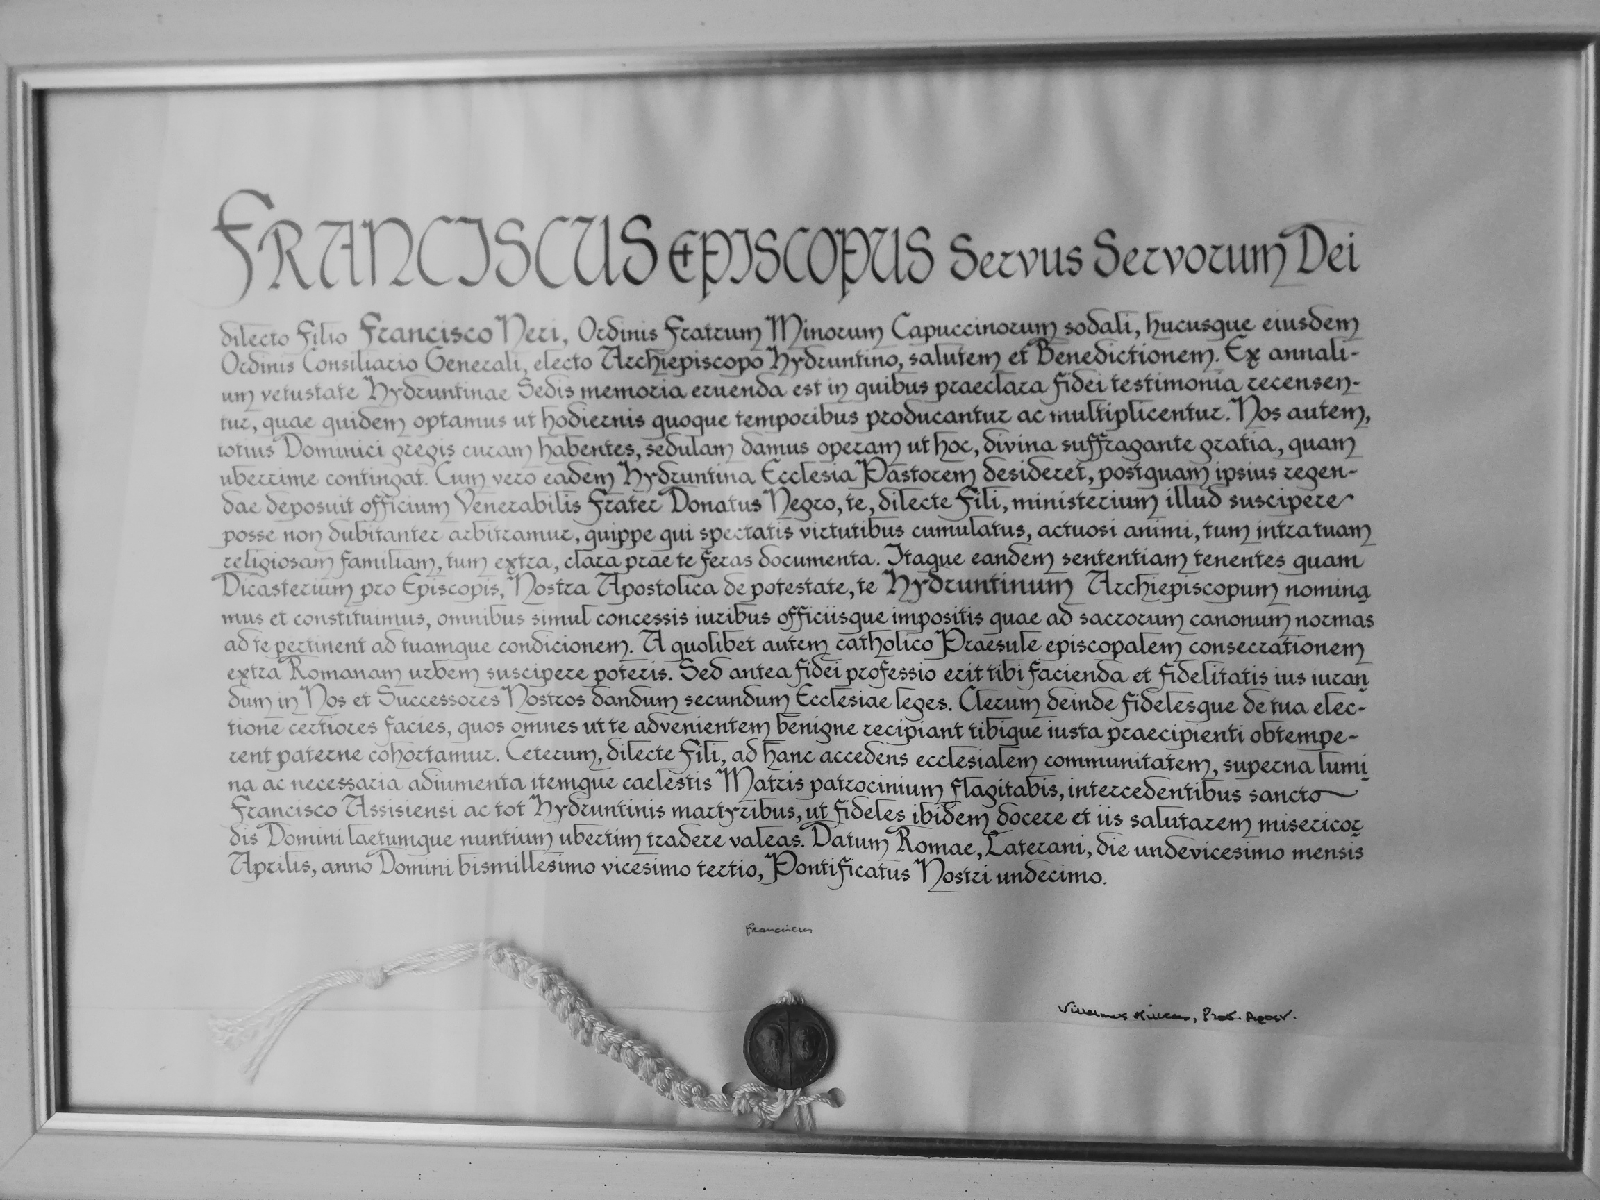 FRANCISCUS EPISCOPUS Servus Servorum Dei
dilecto Filio Francisco Neri, Ordinis Fratrum Minorum Capuccinorum sodali, hucusque eiusdem
Ordinis Consiliario Generali, electo Archiepiscopo Hydruntino, salutem et Benedictionem. Ex annali-
um vetustate Hydruntinae Sedis memoria eruenda est in quibus praeclara fidei testimonia recensen-
tur, quae quidem optamus ut hodiernis quoque temporibus producantur ac multiplicentur. Nos autem,
totius Dominici gregis curam habentes, sedulam damus operam ut hoc, divina suffragante gratia, quam
uberrime contingat. Cum vero eadem Hydruntina Ecclesia Pastorem desideret, postquam ipsius regen-
dae deposuit officium Venerabilis Frater Donatus Negro, te, dilecte Fili, ministerium illud suscipere
posse non dubitanter arbitramur, quippe qui spectatis virtutibus cumulatus, actuosi animi, tum intra tuam
religiosam familiam, tum extra, clara prae te feras documenta. Itaque eandem sententiam tenentes quam
Dicasterium pro Episcopis, Nostra Apostolica de potestate, te Hydruntinum Archiepiscopum nomina
mus et constituimus, omnibus simul concessis iuribus officiisque impositis quae ad sacrorum canonum normas
ad te pertinent ad tuamque condicionem. A quolibet autem catholico Praesule episcopalem consecrationem
extra Romanam urbem suscipere poteris. Sed antea fidei professio erit tibi facienda et fidelitatis ius iuran
dum in Nos et Successores Nostros dandum secundum Ecclesiae leges. Clerum deinde fidelesque de tua elec-
tione certiores facies, quos omnes ut te advenientem benigne recipiant tibique iusta praecipienti obtempe-
rent paterne cohortamur. Ceterum, dilecte Fili, ad hanc accedens ecclesialem communitatem, superna lumi
na ac necessaria adiumenta itemque caelestis Matris patrocinium flagitabis, intercedentibus sancto
Francisco Assisiensi ac tot Hydruntinis martyribus, ut fideles ibidem docere et iis salutarem misericor
dis Domini laetumque nuntium ubertim tradere valeas. Datum Romae, Laterani, die undevicesimo mensis
Aprilis, anno Domini bismillesimo vicesimo tertio, Pontificatus Nostri undecimo.
Franciscus